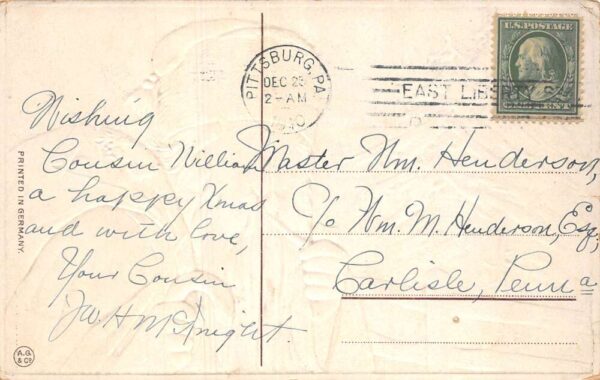 PITTSBURG, PA.
DEC 23
2-AM
1910
EAST LIBERTY S
U.S. POSTAGE
Wishing
Cousin William
a happy Xmas
and with love,
Your Cousin
Jas H McKnight.
Master Wm. Henderson,
c/o Wm. M. Henderson, Esq,
Carlisle, Penna
PRINTED IN GERMANY.
A.G.
& Co